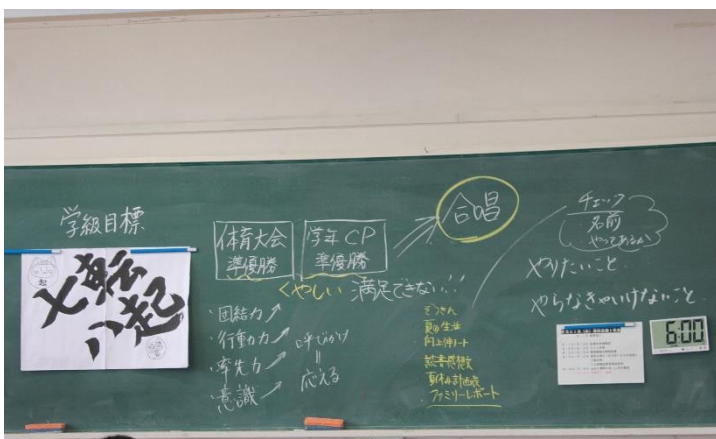 学級目標
七転
八起
体育大会
準優勝
学年CP
準優勝
合唱
くやしい 満足できない!!
・団結力
・行動力
・率先力
・意識
呼びかけ
応える
ぞうきん
夏の生活
向上伸ノート
読書感想文
夏休み計画表
ファミリーレポート
チェック
名前
やってあるか
やりたいこと
やらなきゃいけないこと
6:00